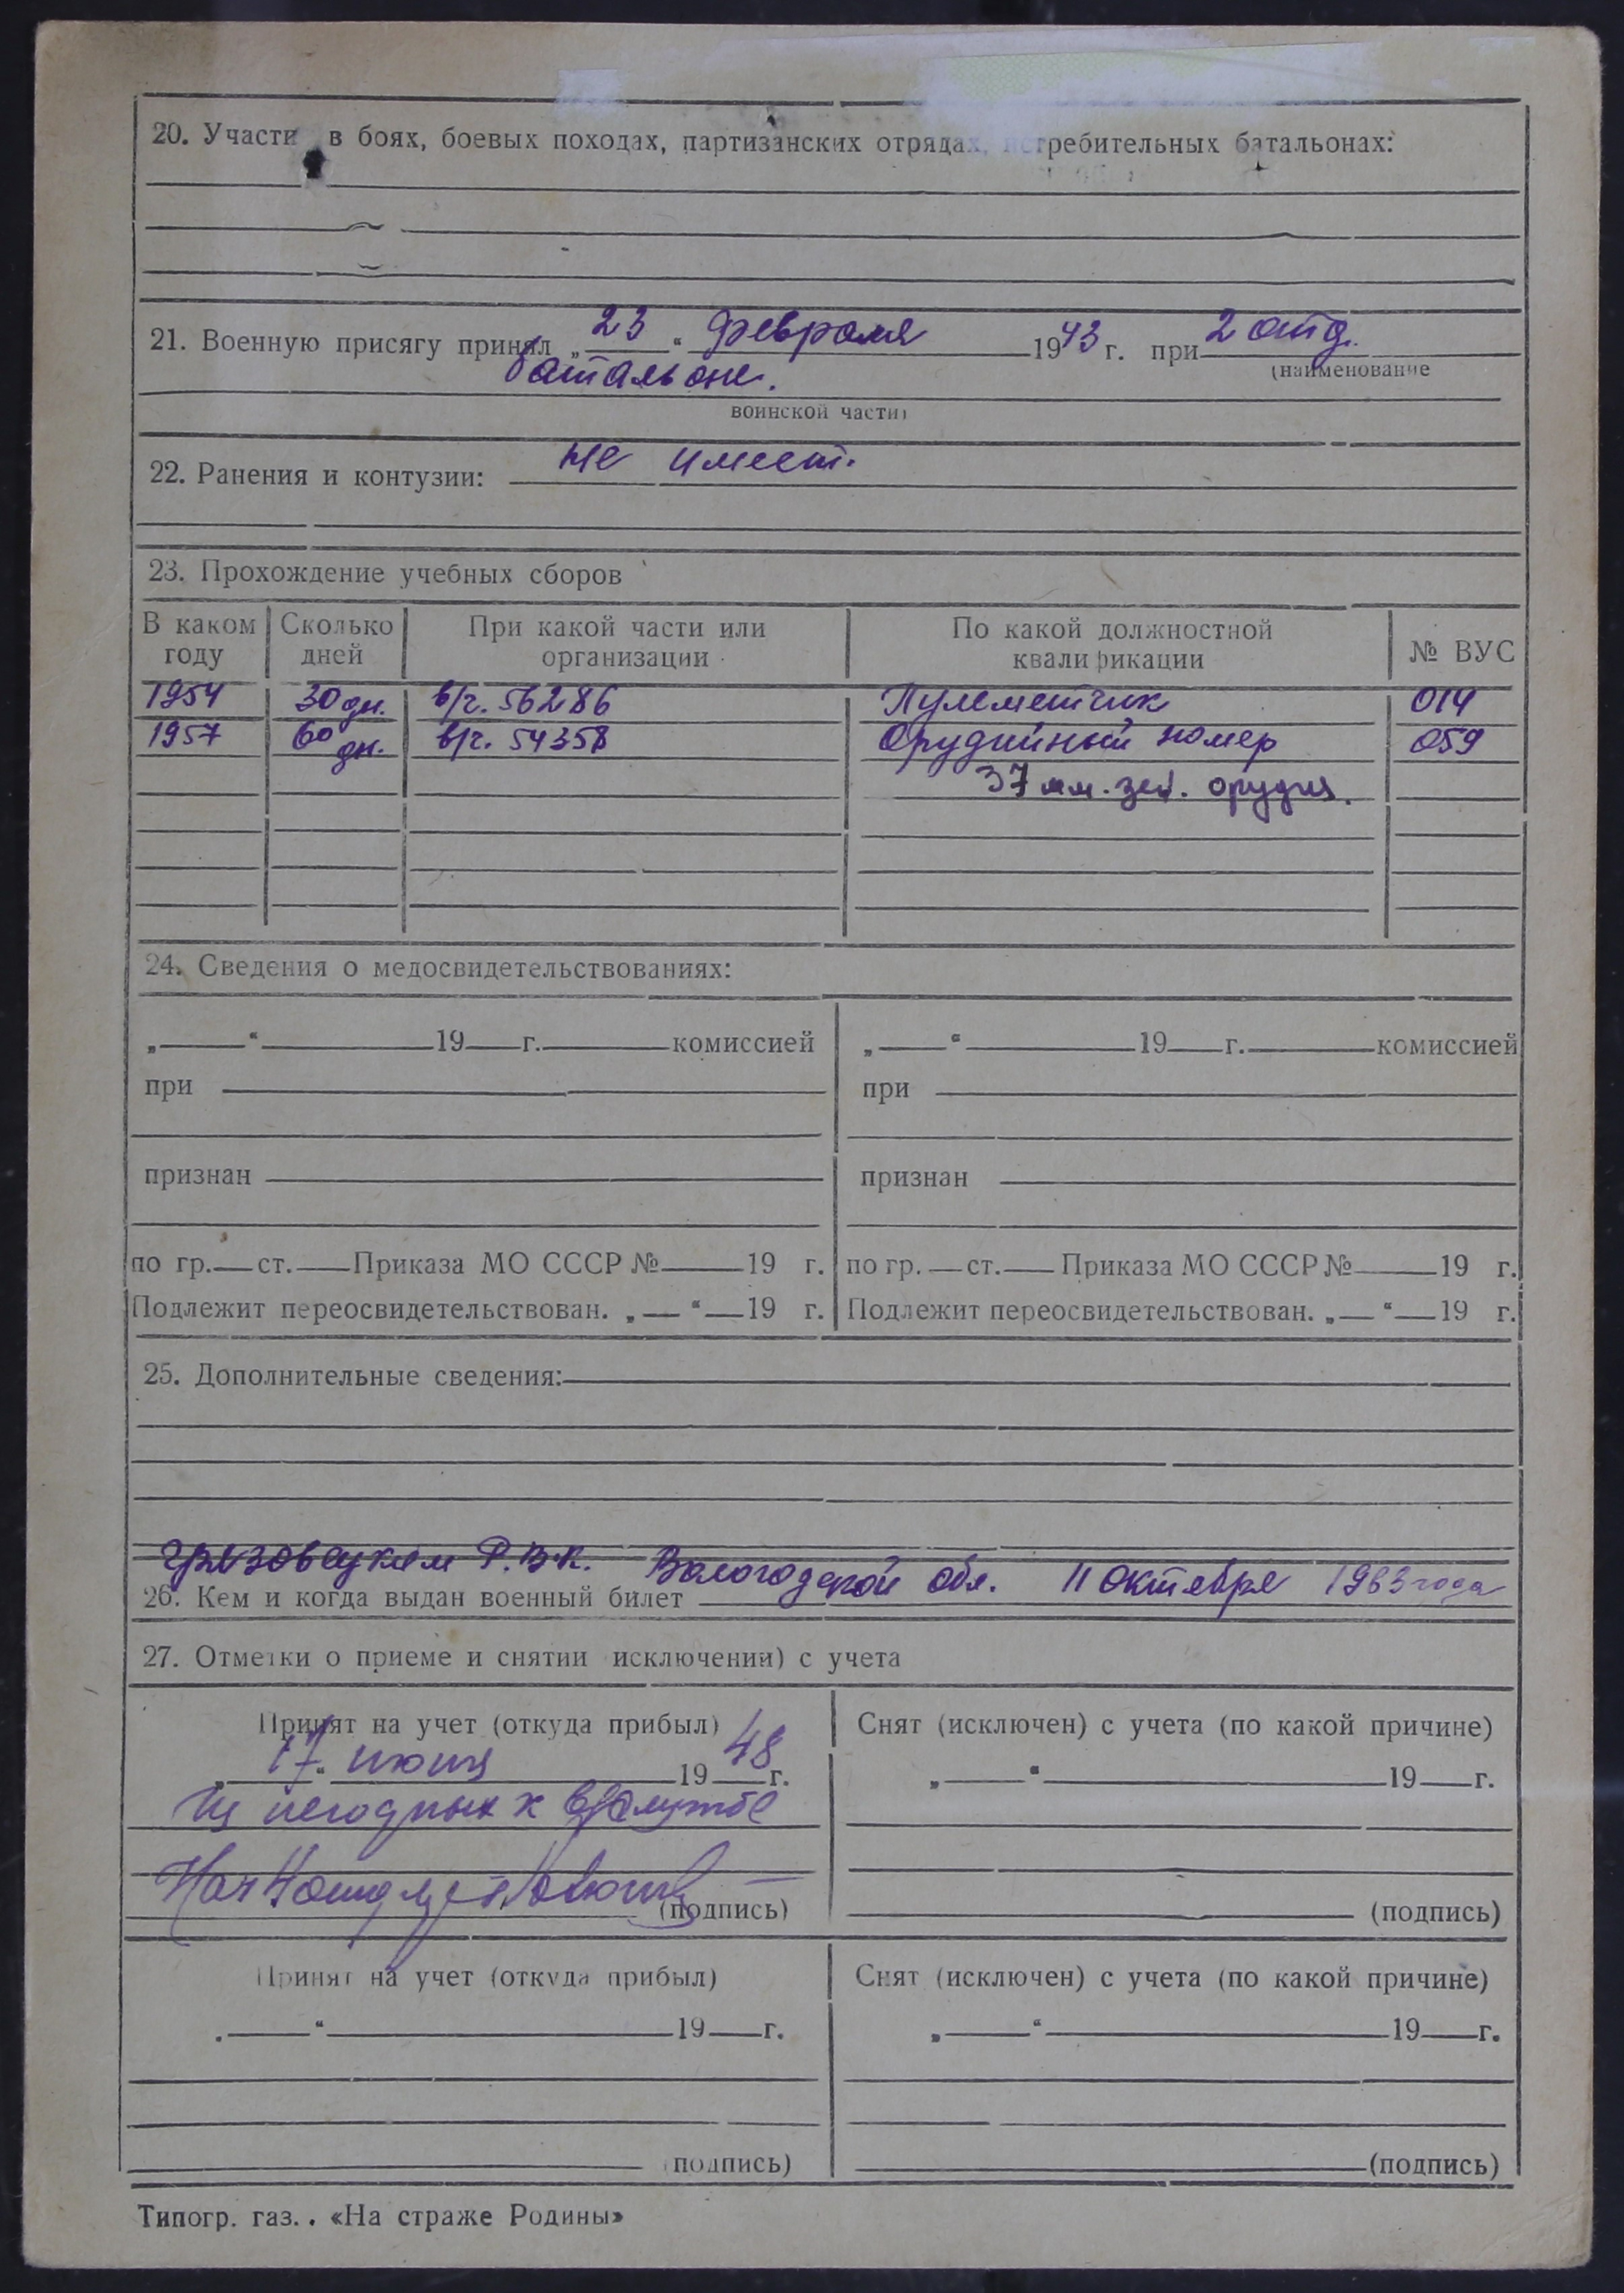 20. Участи в боях, боевых походах, партизанских отрядах, истребительных батальонах:
21. Военную присягу принял „23“ февраля 1943 г. при 2 отд.
(наименование
батальоне.
воинской части)
22. Ранения и контузии: не имеет.
23. Прохождение учебных сборов
В каком году Сколько дней При какой части или организации По какой должностной квалификации № ВУС
1954 30 дн. в/ч. 56286 Пулеметчик 014
1957 60 дн. в/ч. 54358 Орудийный номер 059
37 мм. зен. орудия.
24. Сведения о медосвидетельствованиях:
„ “ 19 г. комиссией „ “ 19 г. комиссией
при при
признан признан
по гр. ст. Приказа МО СССР № 19 г. по гр. ст. Приказа МО СССР № 19 г.
Подлежит переосвидетельствован. „ “ 19 г. Подлежит переосвидетельствован. „ “ 19 г.
25. Дополнительные сведения:
Грязовецким Р.В.К. Вологодской обл. 11 октября 1963 года
26. Кем и когда выдан военный билет
27. Отметки о приеме и снятии исключении) с учета
Принят на учет (откуда прибыл) Снят (исключен) с учета (по какой причине)
„17“ июня 1948 г. „ “ 19 г.
Из негодных к в/службе
Нач
(подпись) (подпись)
Принят на учет (откуда прибыл) Снят (исключен) с учета (по какой причине)
„ “ 19 г. „ “ 19 г.
(подпись) (подпись)
Типогр. газ. . «На страже Родины»